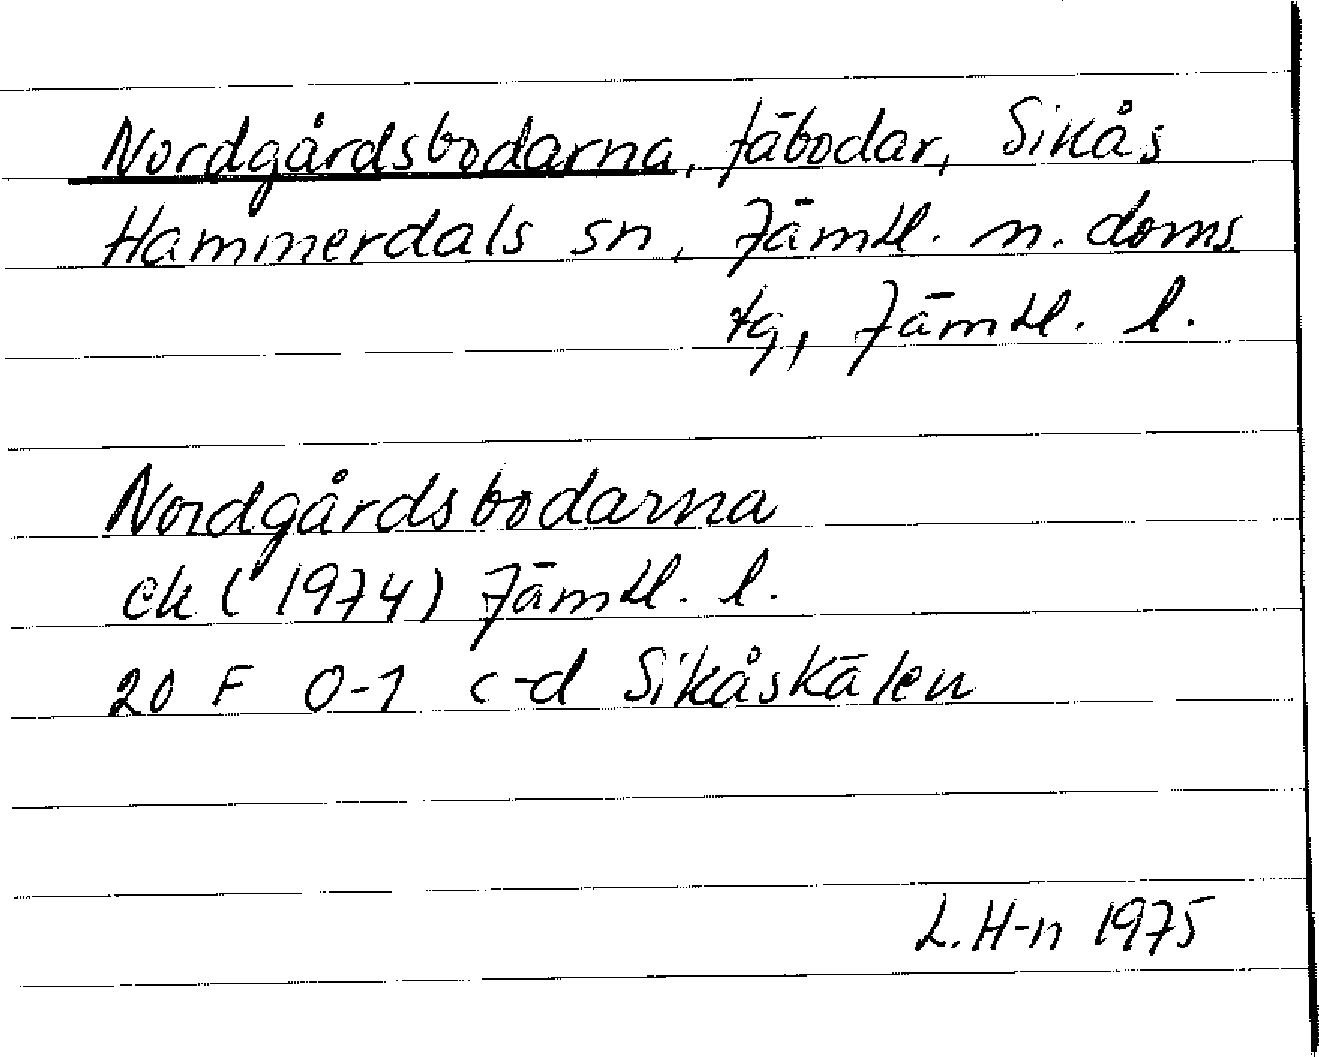 Nordgårdsbodarna, fäbodar, Sikås
Hammerdals sn, Jämtl. n. doms.
tg, Jämtl. l.
Nordgårdsbodarna
ek (1974) Jämtl. l.
20 F 0-1 c-d Sikåskälen
L. H-n 1975